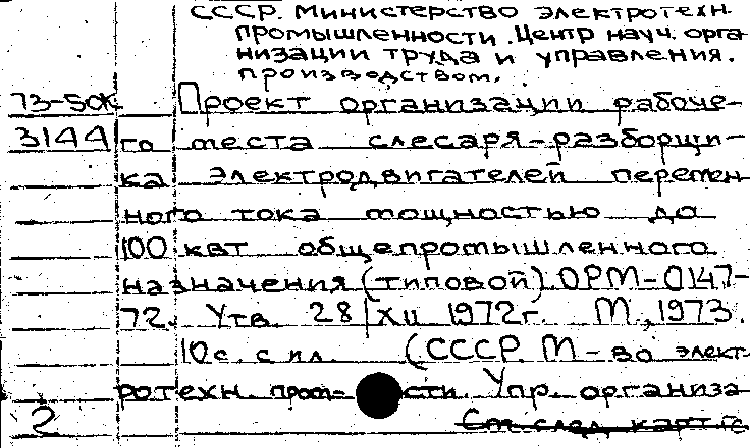 СССР. Министерство электротехн.
промышленности. Центр науч. орга-
низации труда и управления.
производством.
73-50к Проект организации рабоче-
3144 го места слесаря-разборщи-
ка электродвигателей перемен-
ного тока мощностью до
100 квт общепромышленного
назначения (типовой). ОРМ-0147-
72. Утв. 28/XII 1972г. М., 1973.
10с. с ил. (СССР. М-во элект-
ротехн. пром- сти. Упр. организа-
2 См. след. карт.